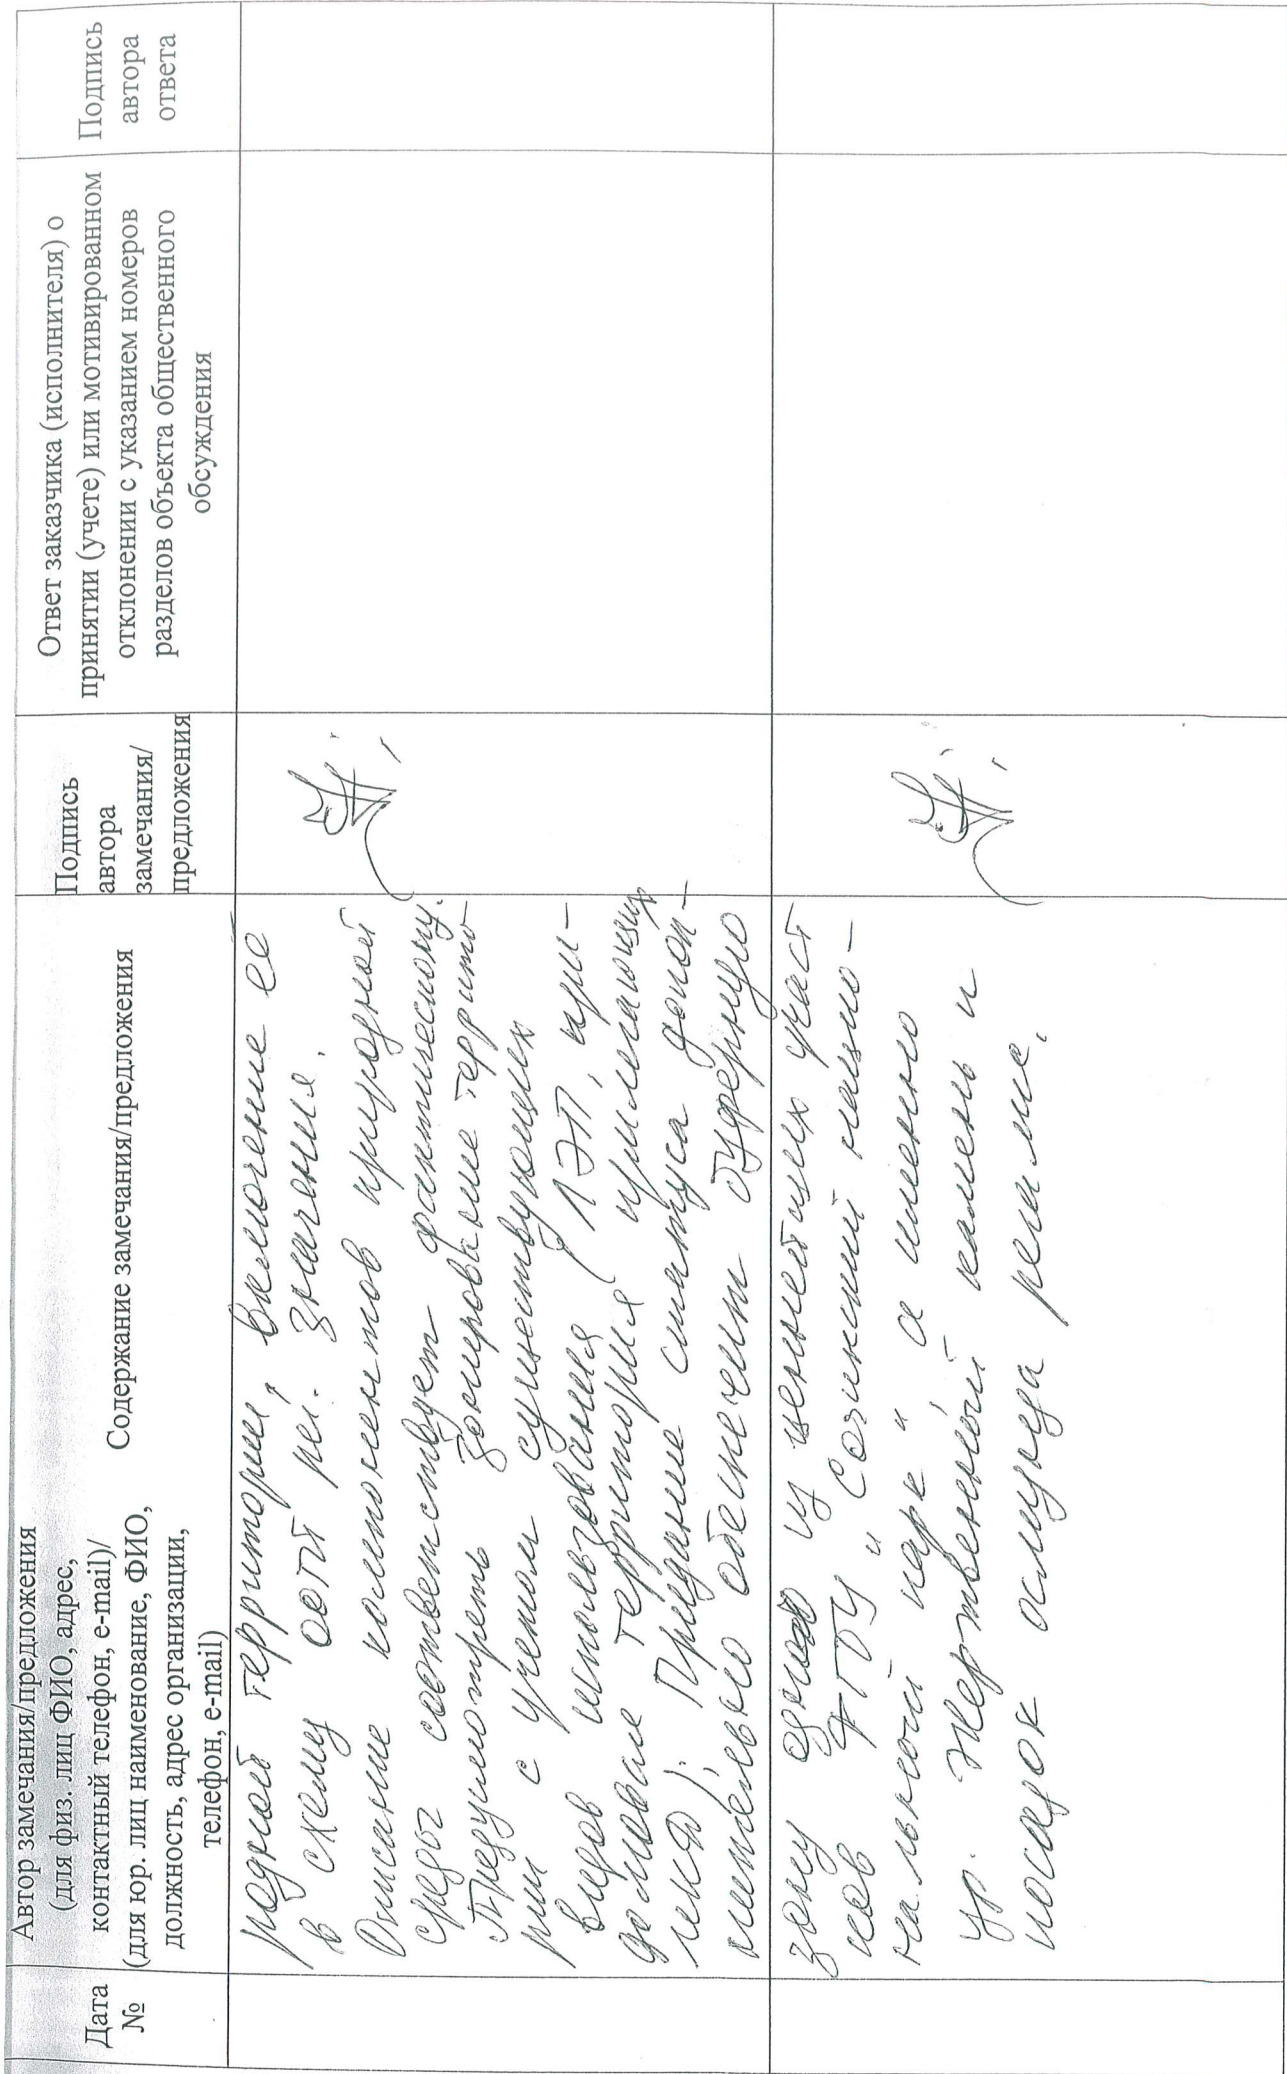 Дата
№
Автор замечания/предложения
(для физ. лиц ФИО, адрес,
контактный телефон, e-mail)/
(для юр. лиц наименование, ФИО,
должность, адрес организации,
телефон, e-mail)
Содержание замечания/предложения
Подпись
автора
замечания/
предложения
Ответ заказчика (исполнителя) о
принятии (учете) или мотивированном
отклонении с указанием номеров
разделов объекта общественного
обсуждения
Подпись
автора
ответа
родной территории, включение её
в схему ООПТ рег. значения.
Описание компонентов природной
среды соответствует фактическому.
Предусмотреть зонирование террито
рии с учетом существующих
видов использования (ЛЭП, при-
домовые территории прилегающих
); Придание статуса допол-
нительно обеспечит буферную
зону одного из ценнейших участ
ков ФГБУ "Сочинский нацио-
нальный парк" а именно
ур. Жертвенный камень и
посадок реликт.